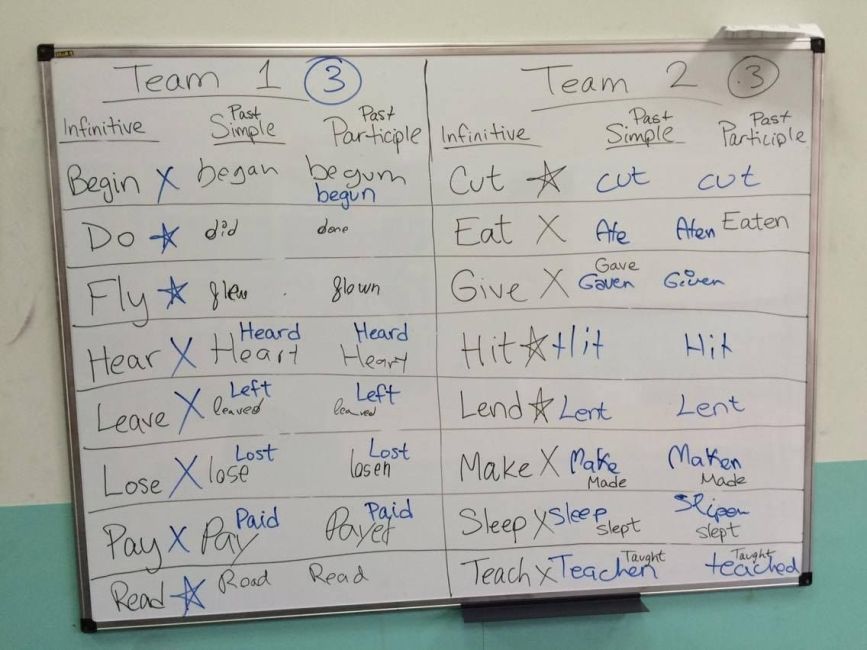 Team 1 3
Infinitive Past Simple Past Participle
Begin X began begum begun
Do did done
Fly flew flown
Heard Heard
Hear X Heart Heart
Left Left
Leave X leaved leaved
Lost Lost
Lose X lose losen
Paid Paid
Pay X Pay Payet
Read Road Read
Team 2 .3
Infinitive Past Simple Past Participle
Cut cut cut
Eat X Ate Aten Eaten
Gave
Give X Gaven Given
Hit Hit Hit
Lend Lent Lent
Make X Make Maken
Made Made
Sleep X Sleep Slipen
slept slept
Taught Taught
Teach X Teachen teached